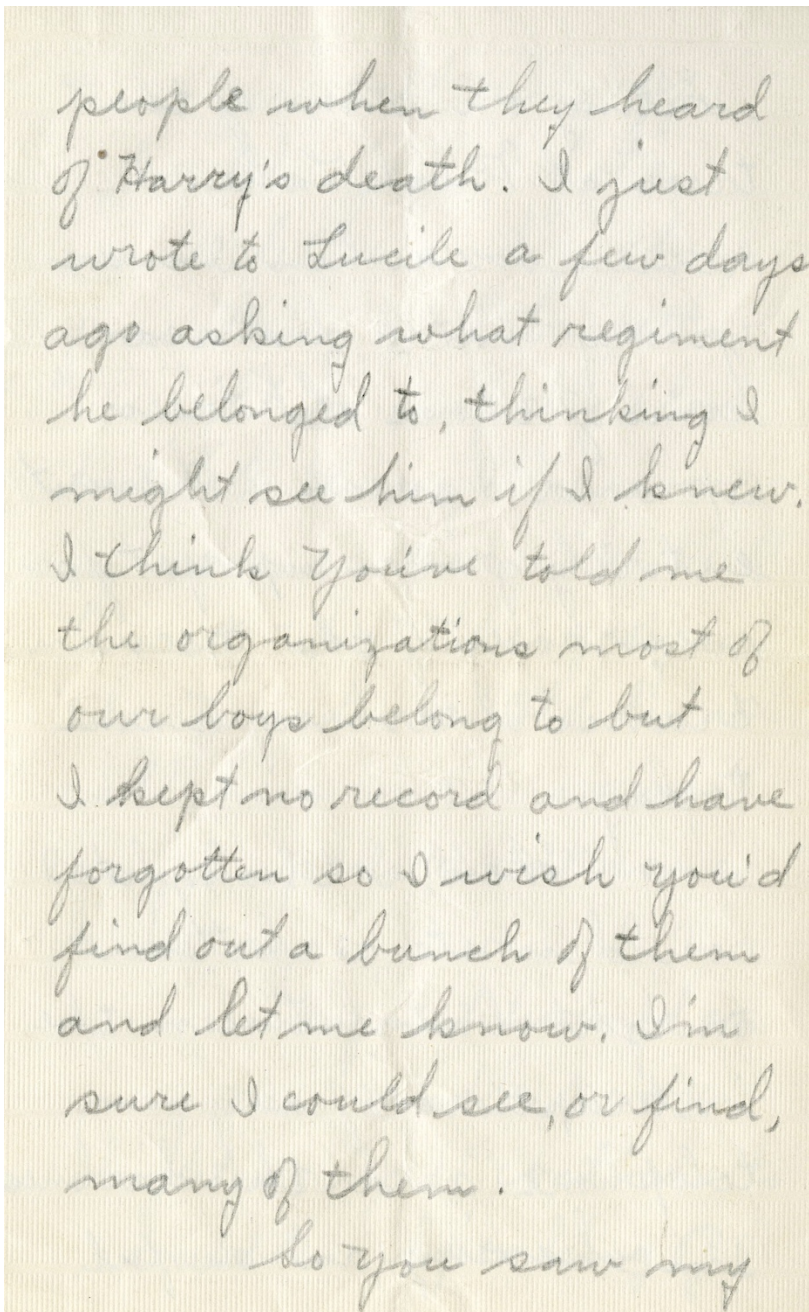 people when they heard
of Harry's death. I just
wrote to Lucile a few days
ago asking what regiment
he belonged to, thinking I
might see him if I knew.
I think You've told me
the organizations most of
our boys belong to but
I kept no record and have
forgotten so I wish you'd
find out a bunch of them
and let me know. I'm
sure I could see, or find,
many of them.
So you saw my